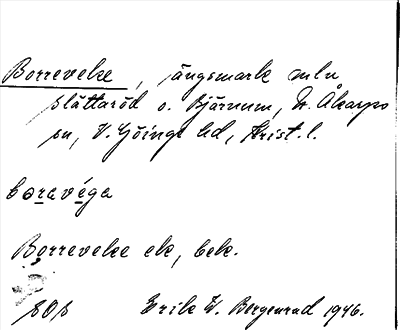 Borreveke, ängsmark mln
Slättaröd o. Bjärnum, N. Åkarps
sn, V. Göinge hd, Krist. l.
boravéga
Borreveke ek, bek.
SOS Erik W. Bergenrud 1946.